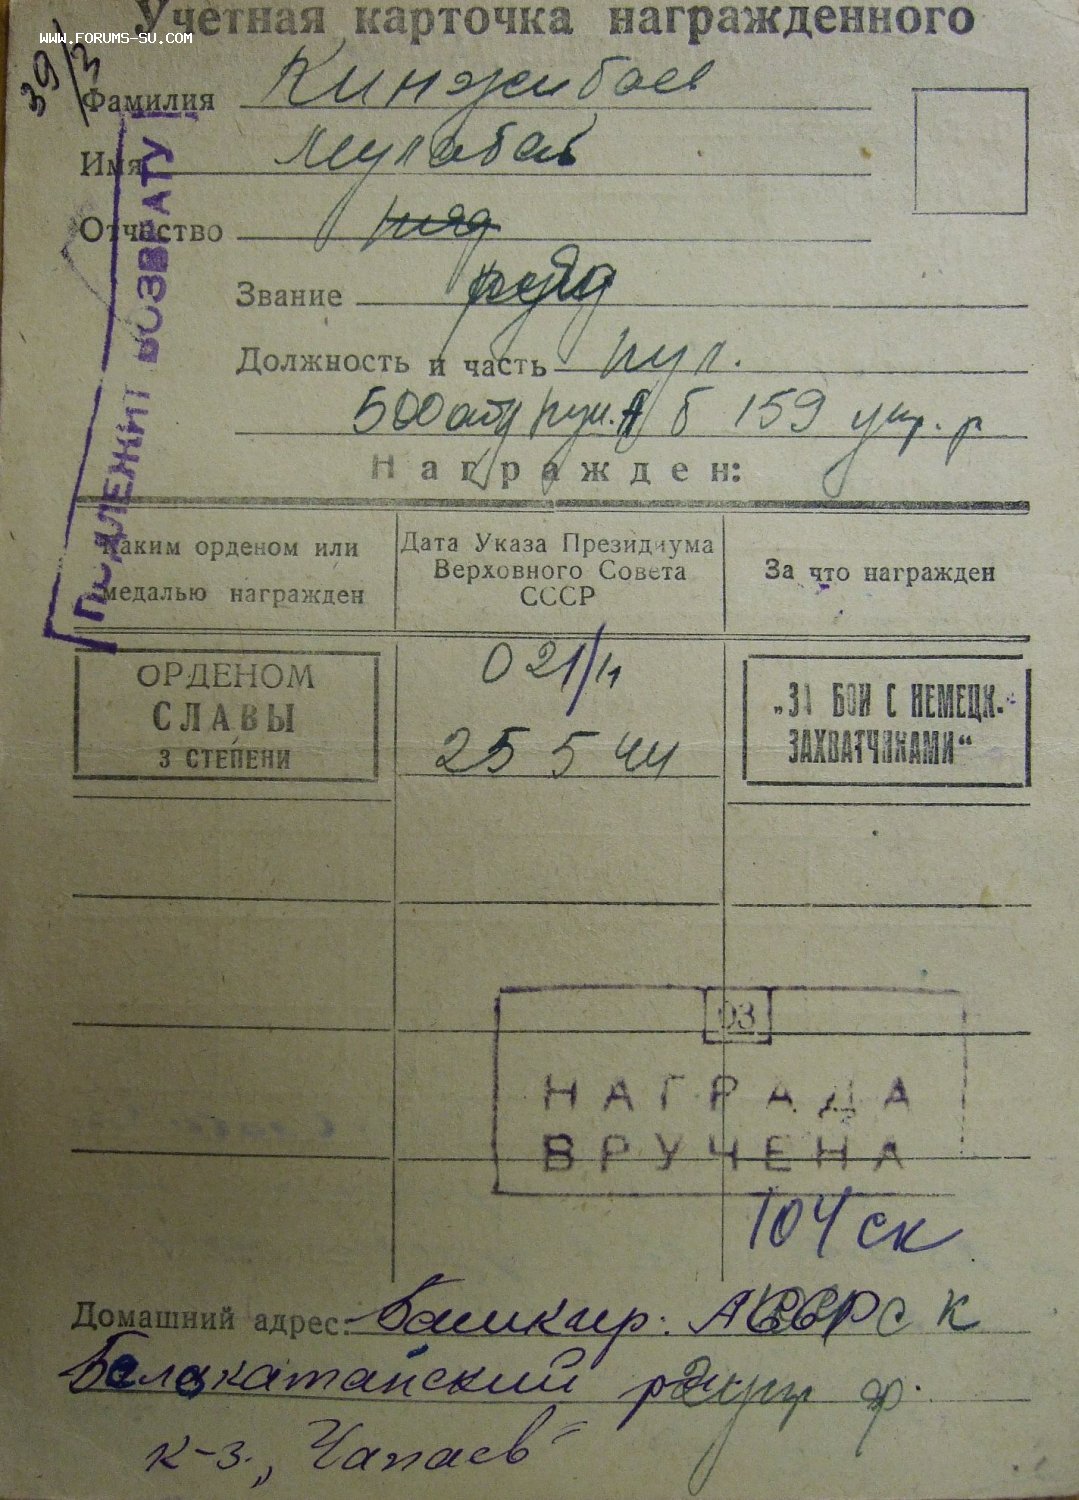 Учетная карточка награжденного
www.forums-su.com
39/3
Фамилия Кинжибаев
Имя Мулабай
Отчество
Звание ряд
Должность и часть пул.
500 отд пул. А б 159 укр. р
ПОДЛЕЖИТ ВОЗВРАТУ
Награжден:
Каким орденом или медалью награжден
Дата Указа Президиума Верховного Совета СССР
За что награжден
ОРДЕНОМ
СЛАВЫ
3 СТЕПЕНИ
021/н
25 5 44
„ЗА БОИ С НЕМЕЦК.
ЗАХВАТЧИКАМИ“
03
НАГРАДА
ВРУЧЕНА
104 ск
Домашний адрес: Башкир. АССР
Белокатайский р
к-з. „Чапаев"